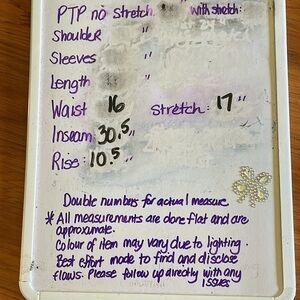 PTP no Stretch: " with stretch:
Shoulder "
Sleeves "
Length "
Waist 16 Stretch: 17"
Inseam: 30.5"
Rise: 10.5"
Double numbers for actual measure
* All measurements are done flat and are
approximate.
Colour of item may vary due to lighting.
Best effort made to find and disclose
flaws. Please follow up directly with any
issues